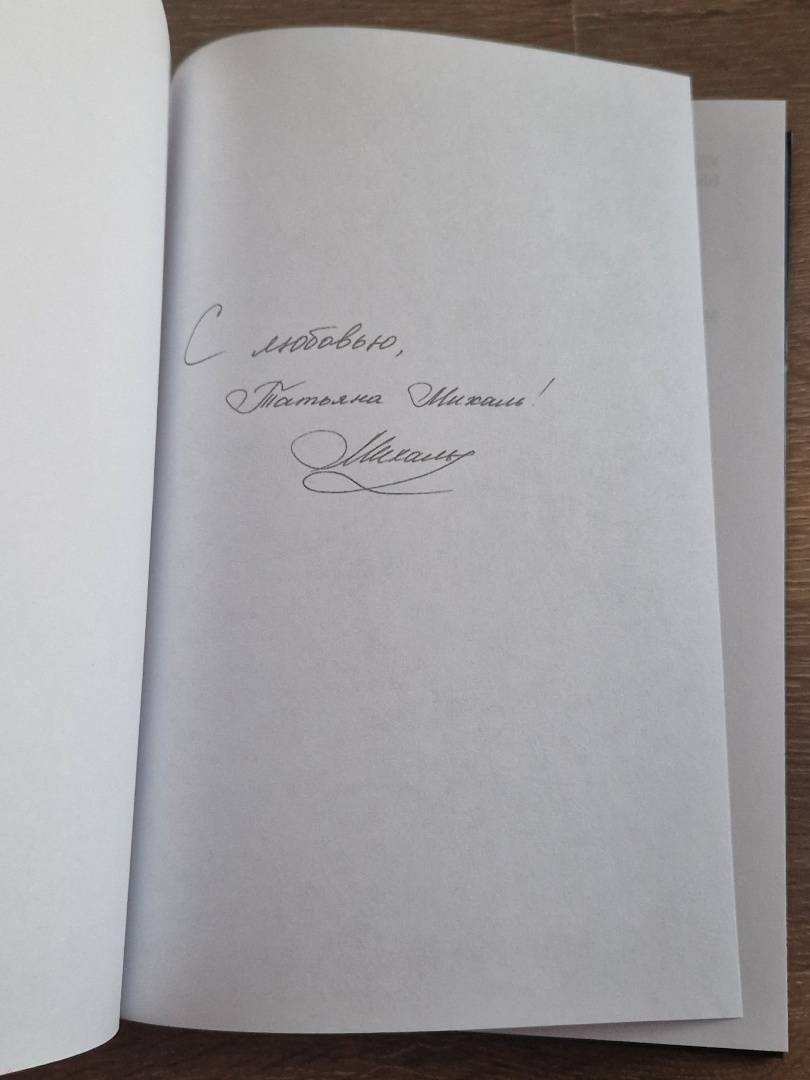 С любовью,
Татьяна Михаль!
Михаль